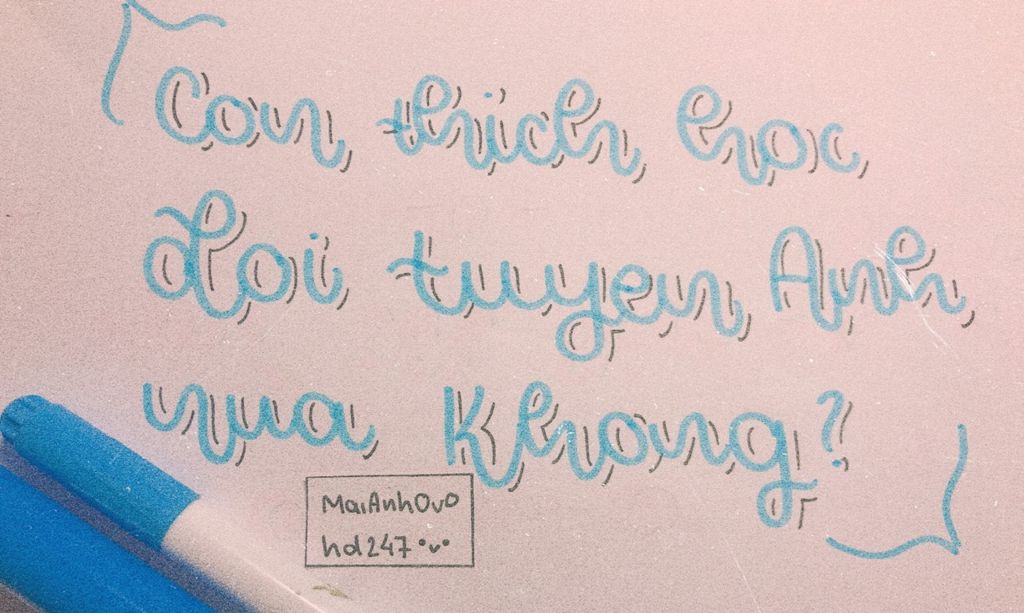 Con thich hoc
doi tuyen Anh
nua Khong?
MaiAnhOvO
hd247 •v•